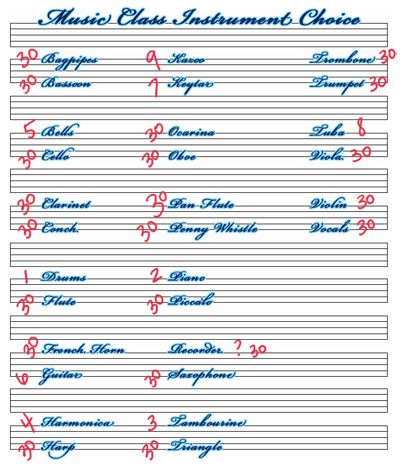 Music Class Instrument Choice
30 Bagpipes 9 Kazoo Trombone 30
30 Bassoon 7 Keytar Trumpet 30
5 Bells 30 Ocarina Tuba 8
30 Cello 30 Oboe Viola 30
30 Clarinet 30 Pan Flute Violin 30
30 Conch 30 Penny Whistle Vocals 30
1 Drums 2 Piano
30 Flute 30 Piccalo
30 French Horn Recorder ? 30
6 Guitar 30 Saxophone
4 Harmonica 3 Tambourine
30 Harp 30 Triangle